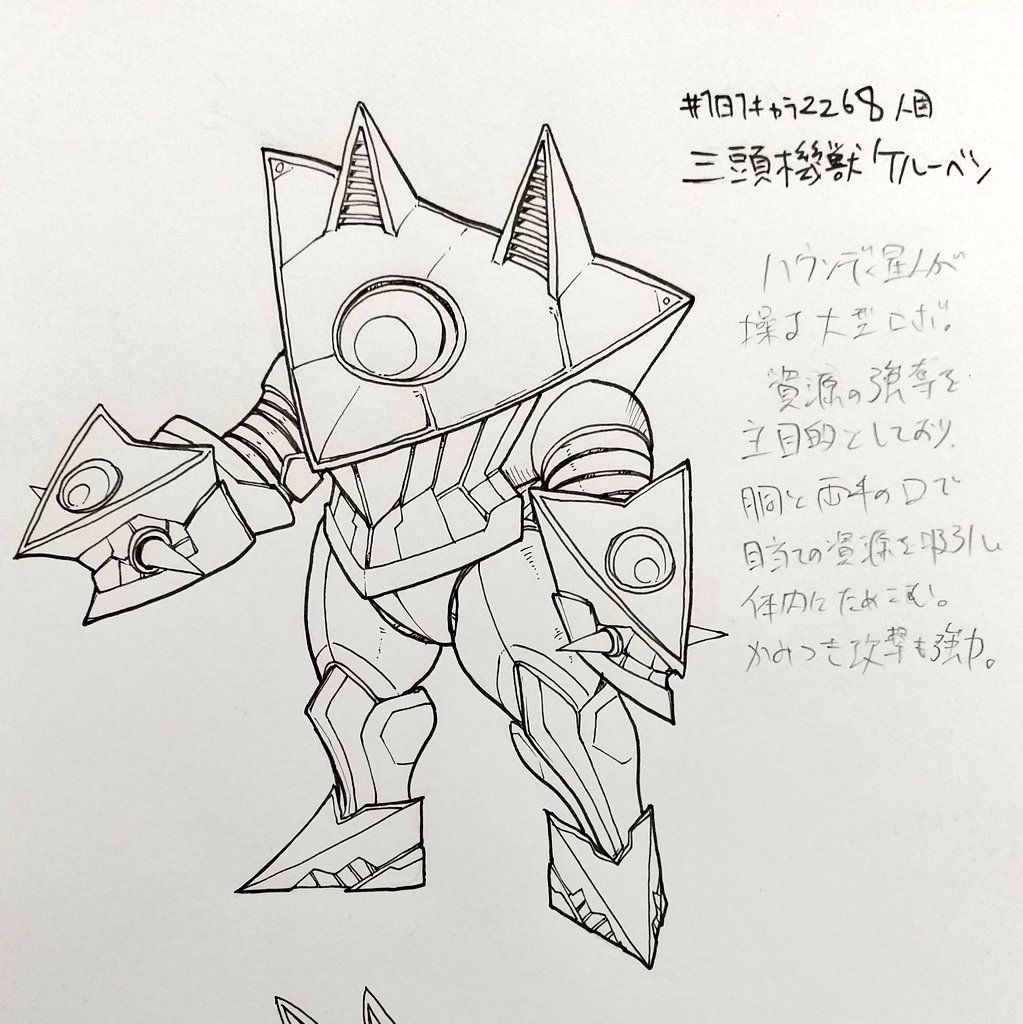 #1日1キャラ2268人目
三頭機獣ケルーベン
ハウンデく星人が
操る大型ロボ。
資源の強奪を
主目的としており、
胴と両手の口で
目当ての資源を吸引し
体内にためこむ。
かみつき攻撃も強力。